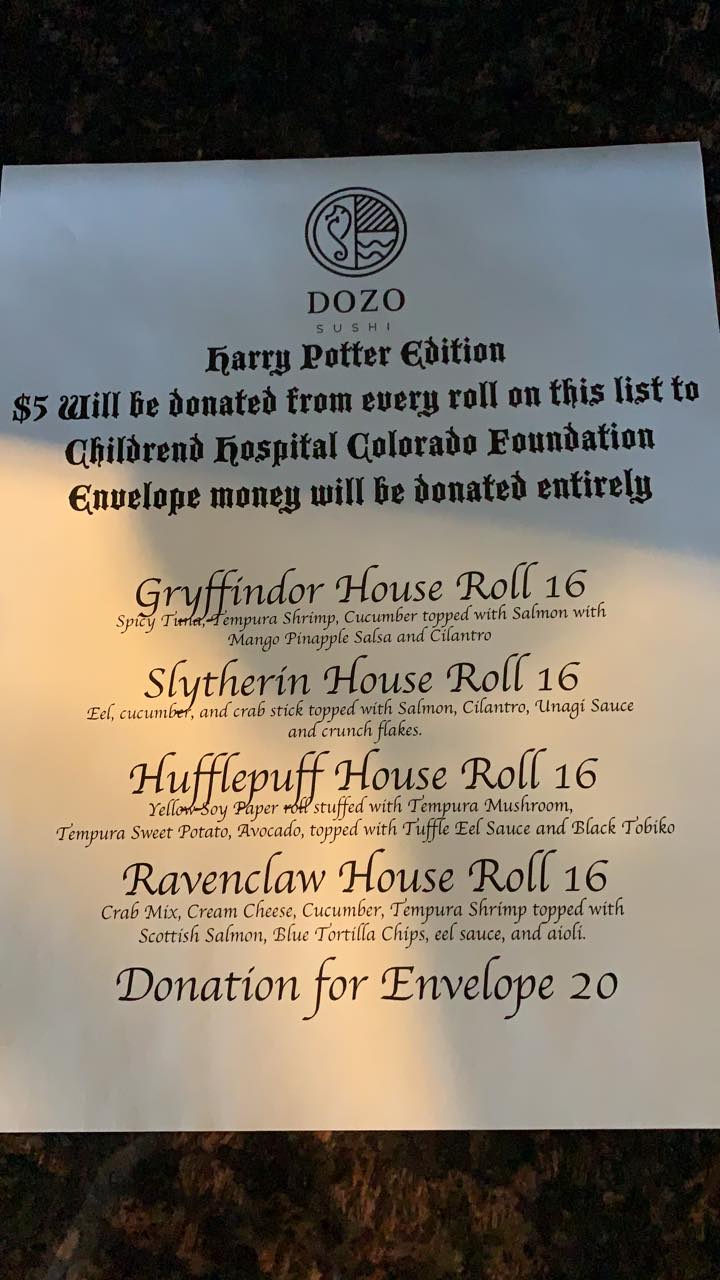 DOZO
SUSHI
Harry Potter Edition
$5 Will be donated from every roll on this list to
Childrend Hospital Colorado Foundation
Envelope money will be donated entirely
Gryffindor House Roll 16
Spicy Tuna, Tempura Shrimp, Cucumber topped with Salmon with
Mango Pinapple Salsa and Cilantro
Slytherin House Roll 16
Eel, cucumber, and crab stick topped with Salmon, Cilantro, Unagi Sauce
and crunch flakes.
Hufflepuff House Roll 16
Yellow Soy Paper roll stuffed with Tempura Mushroom,
Tempura Sweet Potato, Avocado, topped with Tuffle Eel Sauce and Black Tobiko
Ravenclaw House Roll 16
Crab Mix, Cream Cheese, Cucumber, Tempura Shrimp topped with
Scottish Salmon, Blue Tortilla Chips, eel sauce, and aioli.
Donation for Envelope 20